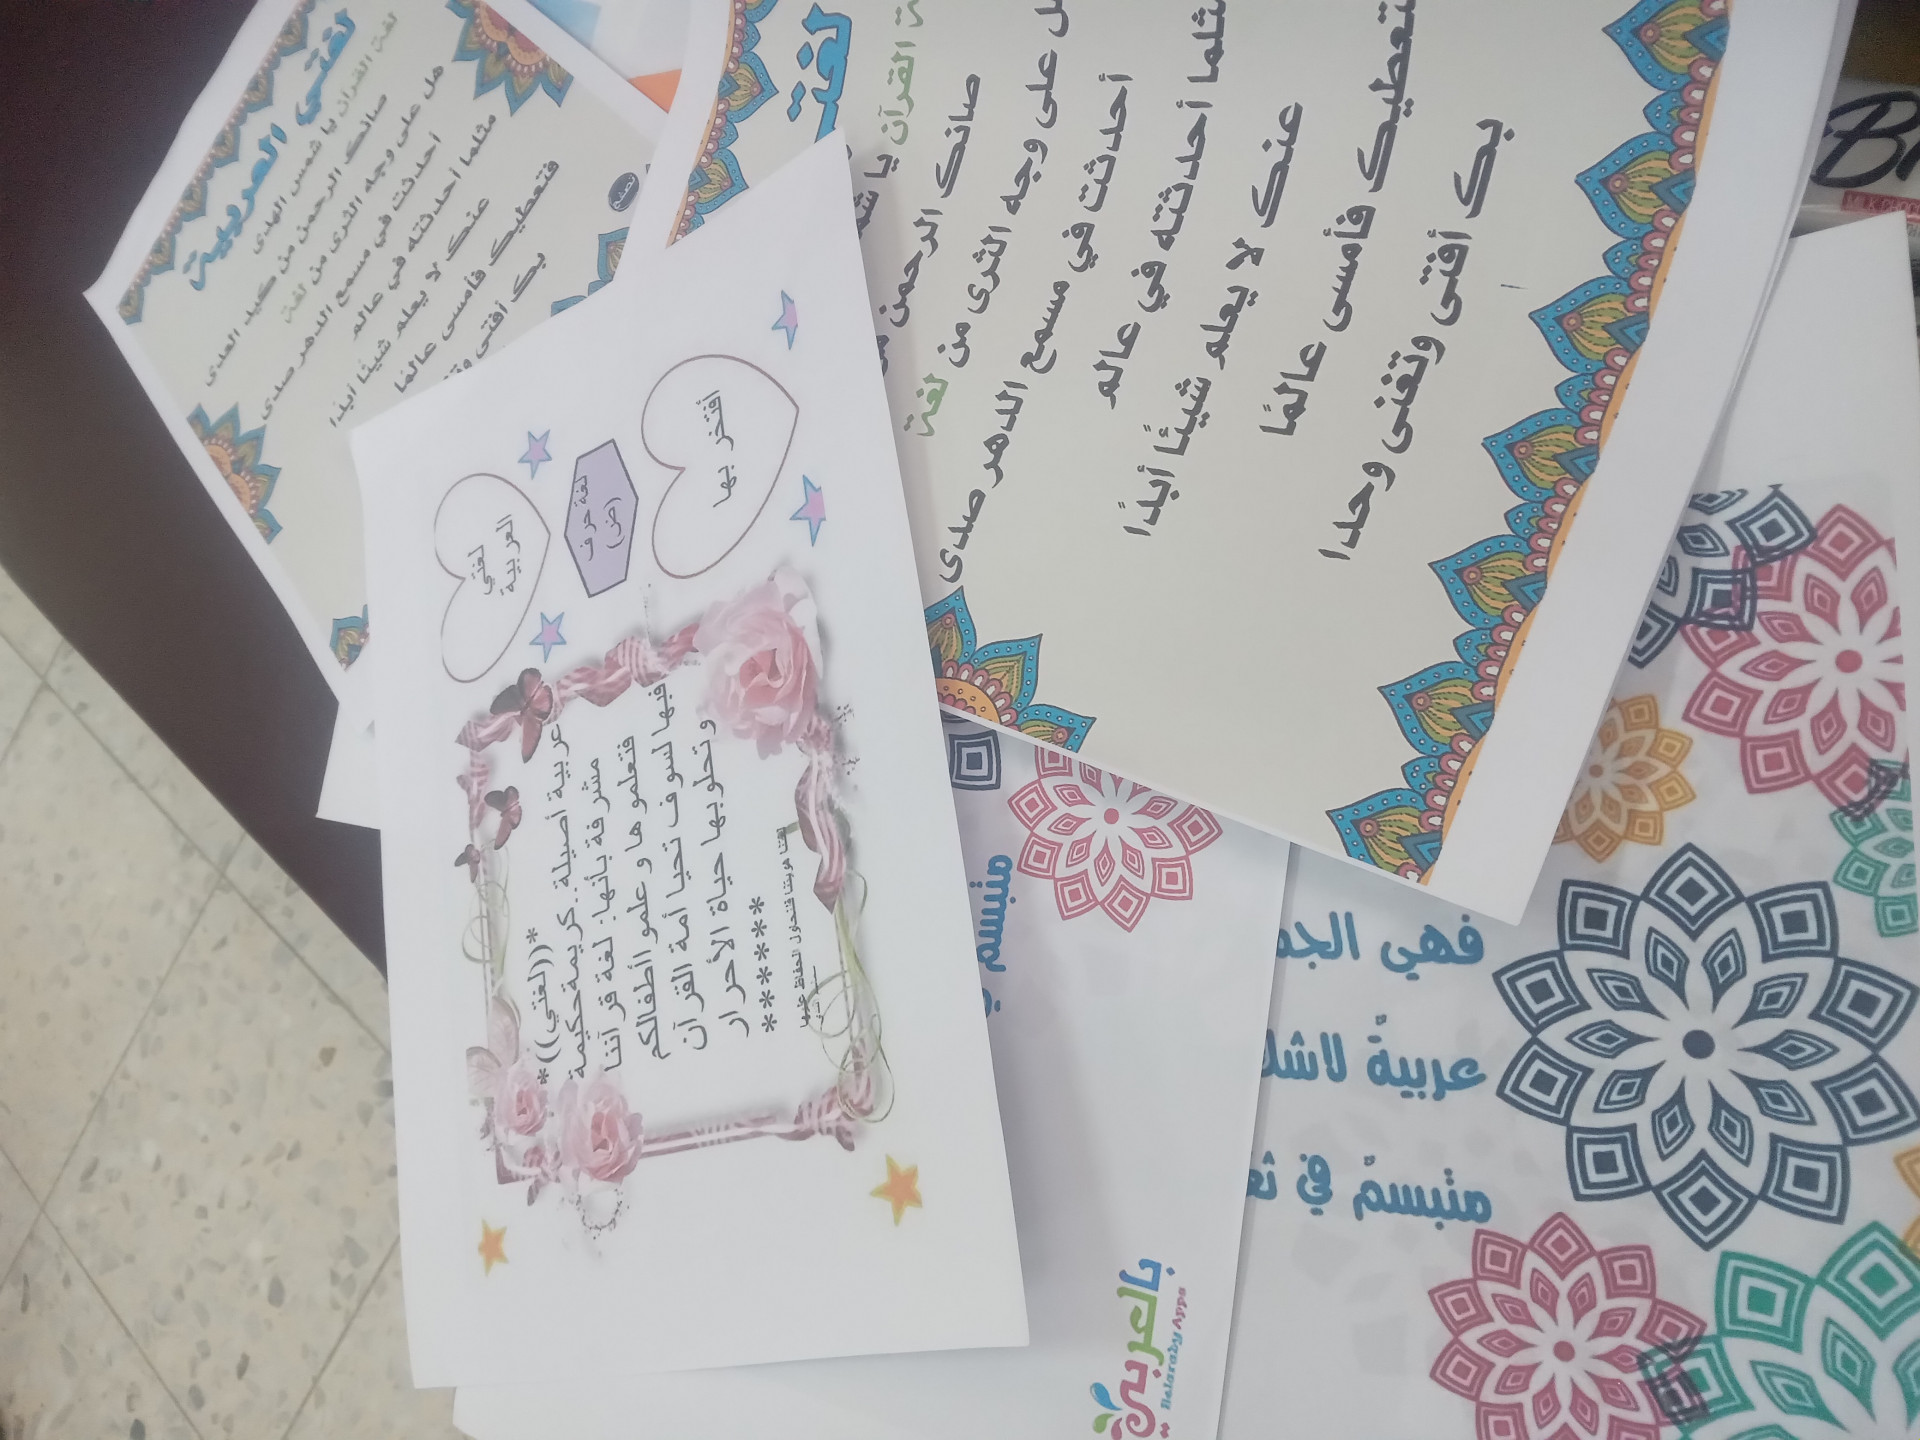 لغتي العربية
لغة القرآن يا شمس الهدى
صانك الرحمن من كيد العدى
هل على وجه الثرى من لغة
أحدثت في مسمع الدهر صدى
مثلما أحدثته في عالم
عنك لا يعلم شيئًا أبدًا
فتعطيك فأمسى عالمًا
بك أفتى
القرآن يا
صانك الرحمن
على وجه الثرى من لغة
أحدثت في مسمع الدهر صدى
أحدثته في عالم
عنك لا يعلم شيئًا أبدًا
فأمسى عالمًا
بك أفتى وتغنى وحدا
لغتي
العربية
لغة حرف
(ض)
أفتخر بها
*((لغتي))*
عربية أصيلة..كريمة حكيمة
مشرفة بأنها: لغة قرآننا
فتعلموها و علموا أطفالكم
فبها لسوف تحيا أمة القرآن
و تحلو بها حياة الأحرار
*****
لغتنا هويتنا فلنحاول الحفاظ عليها
متبسم
بالعربي
Belaraby Apps
فهي
عربيةٌ
متبسمٌ في
Br
MILK CHOC